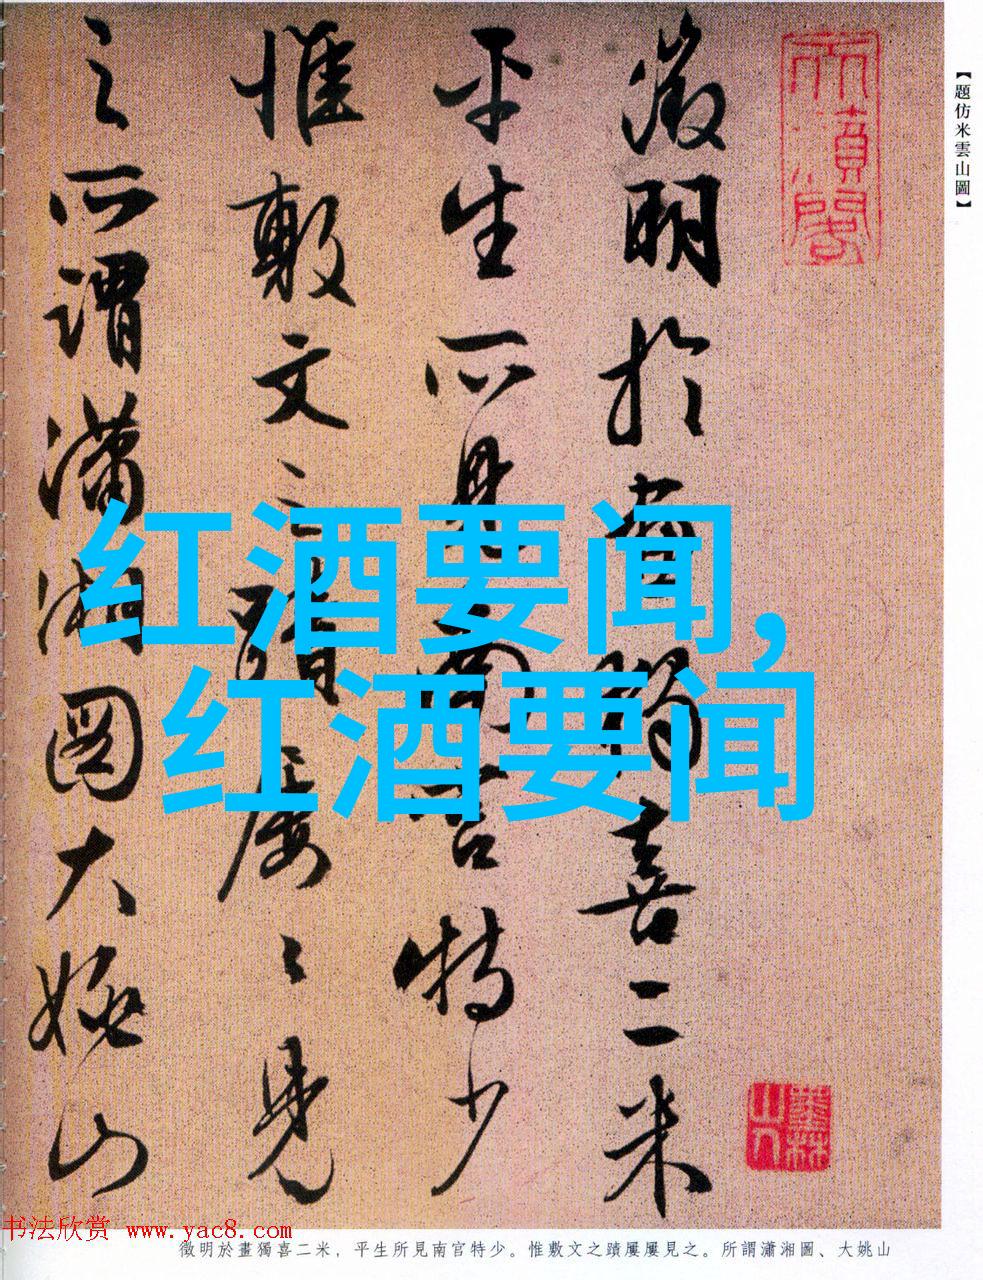 【題仿米雲山圖】
徵明於畫獨喜二米
平生所見南宮特少
惟敷文之蹟屢〻見
之所謂瀟湘圖大姚山
墨林
山人
红酒要闻,
红酒要闻
徵明於畫獨喜二米，平生所見南宮特少。惟敷文之蹟屢屢見之。所謂瀟湘圖、大姚山
书法欣赏 www.yac8.com